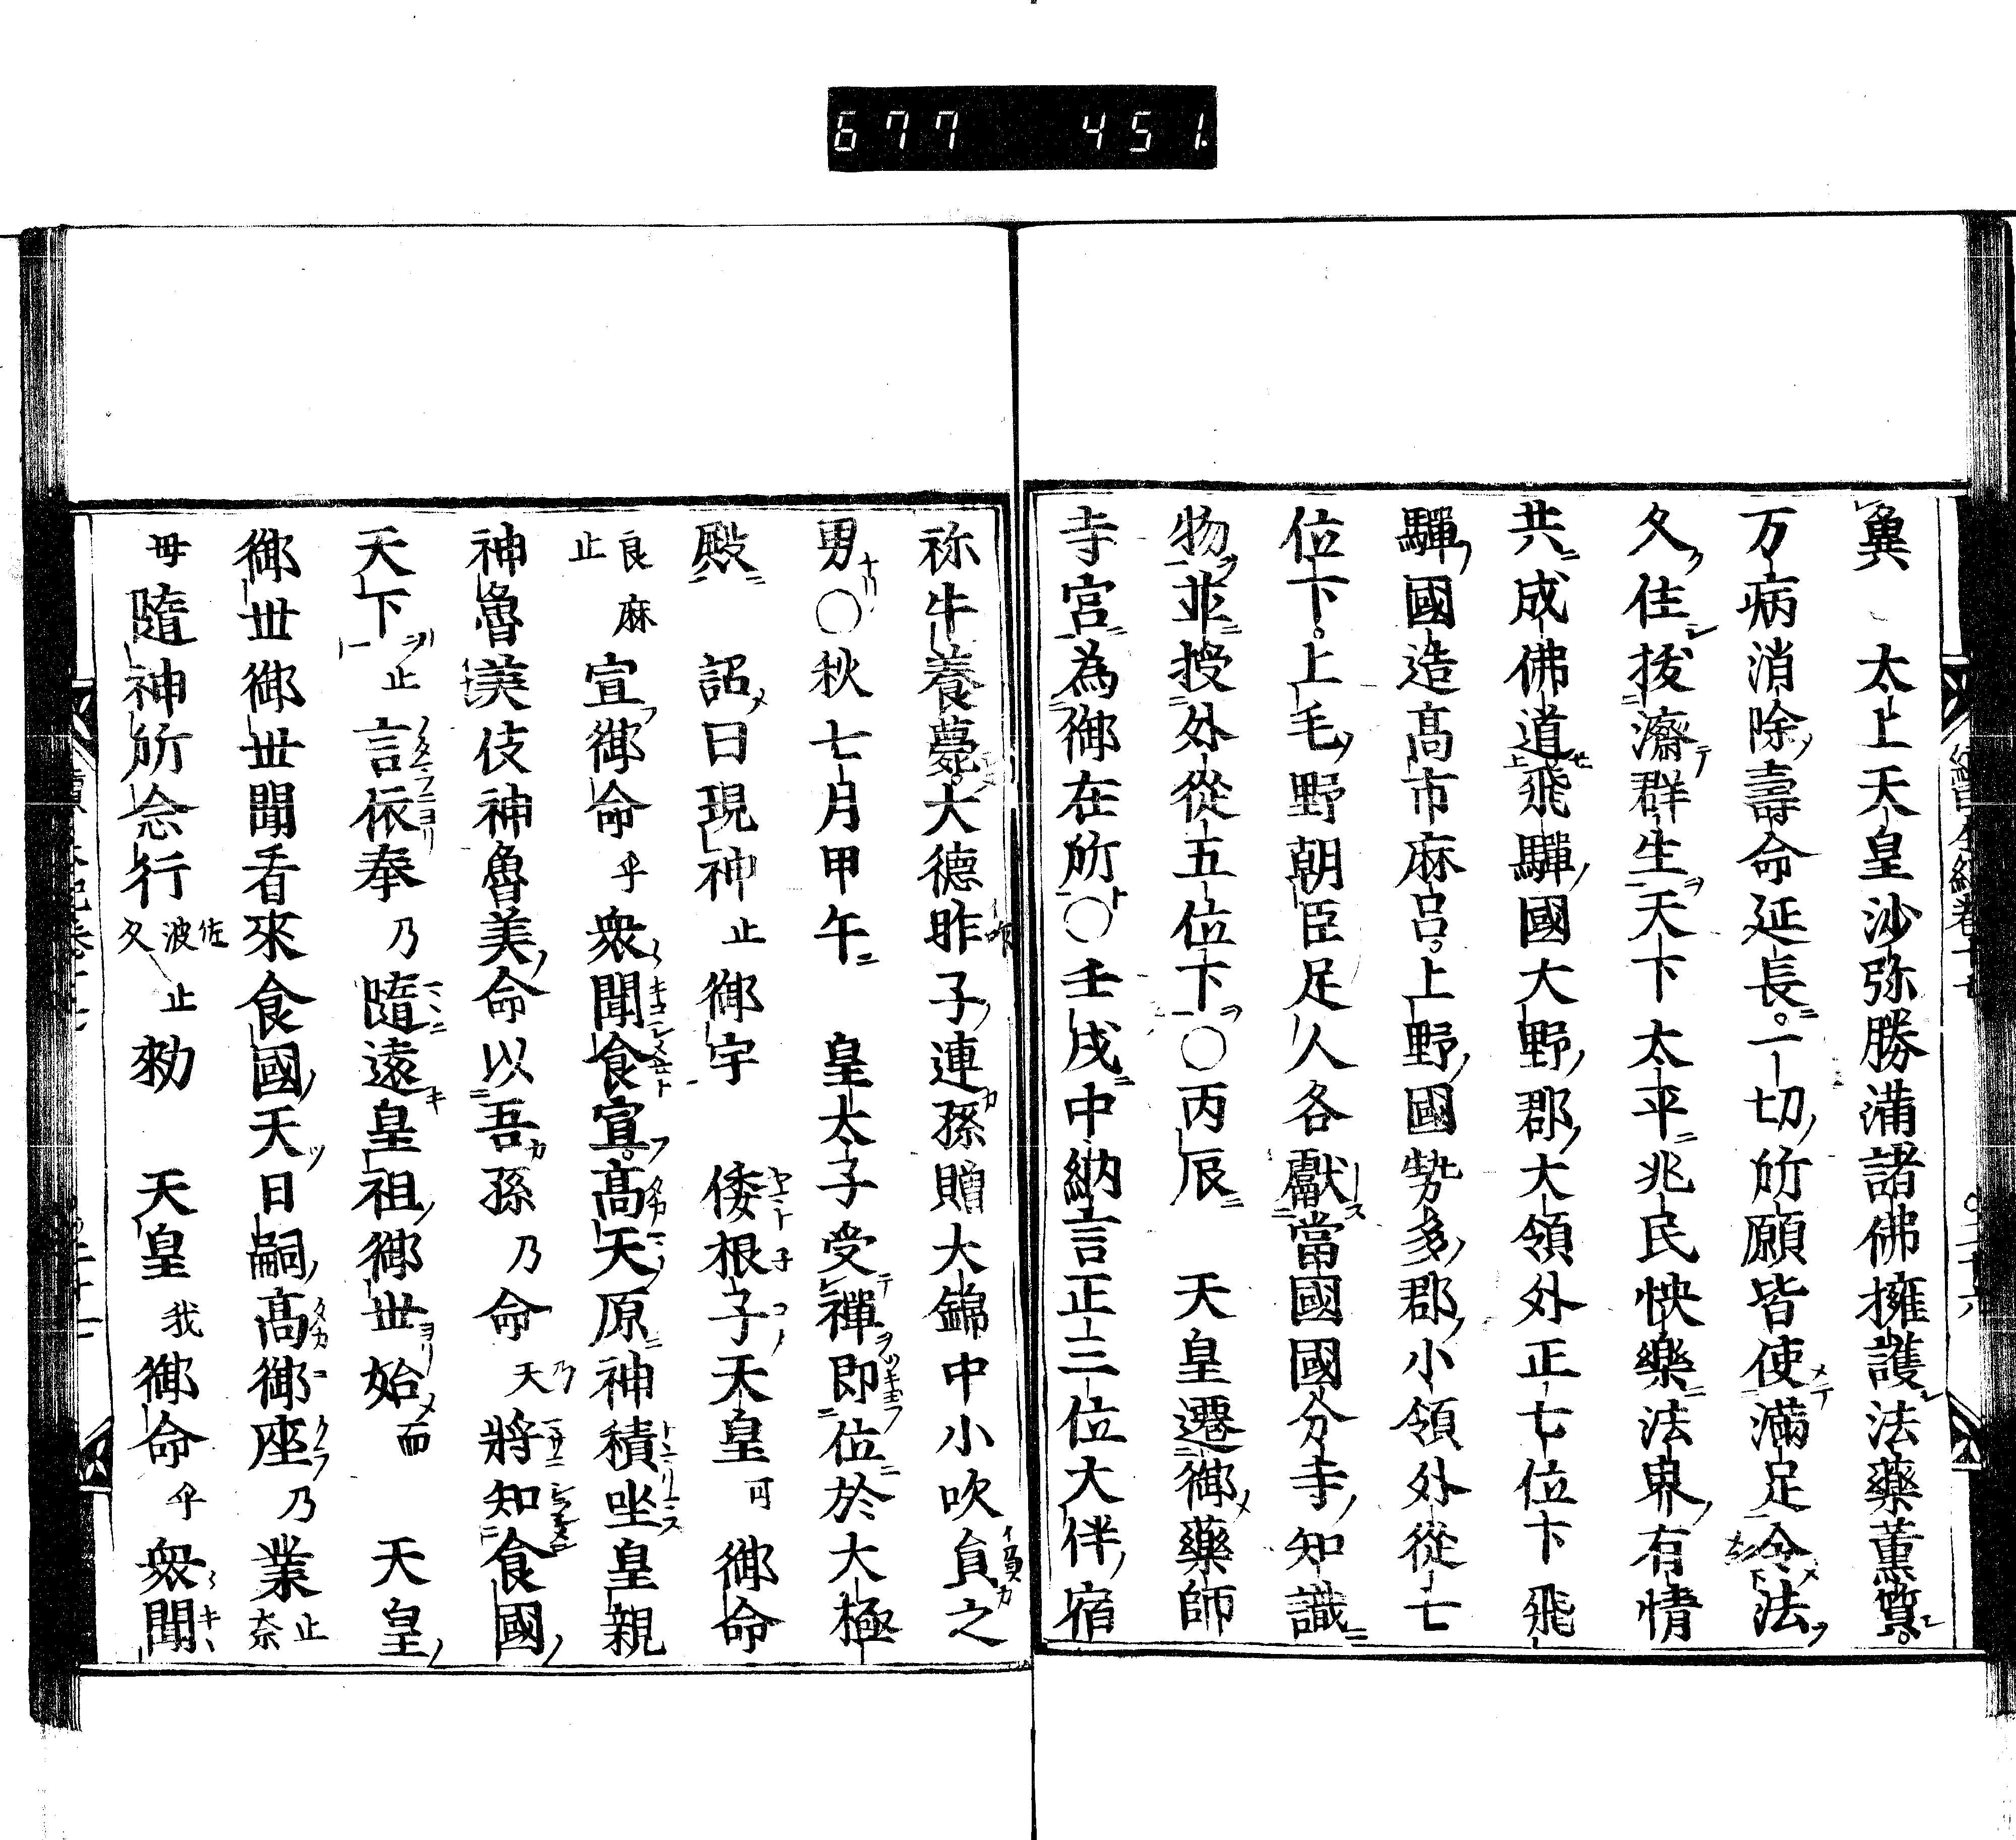 677 451
冀 太上天皇沙弥勝満諸佛擁護法藥薫質
万病消除壽命延長一切所願皆使満足令法
久住拔濟群生天下太平兆民快樂法界有情
共成佛道飛驒國大野郡大領外正七位下飛
驒國造髙市麻呂上野國勢多郡小領外從七
位下上毛野朝臣足人各獻當國國分寺知識
物並授外從五位下〇丙辰 天皇遷御藥師
寺宮為御在所〇壬戌中納言正三位大伴宿
祢牛養薨大德昨子連孫贈大錦中小吹負之
男〇秋七月甲午 皇太子受禪即位於大極
殿 詔曰現神止御宇 倭根子天皇可御命
良麻止宣御命乎衆聞食宣髙天原神積坐皇親
神魯美伎神魯美命以吾孫乃命乃天將知食國
天下止言依奉乃隨遠皇祖御世始而 天皇
御世御世聞看來食國天日嗣髙御座乃業止奈
毋隨神所念行久佐波止勅 天皇我御命乎衆聞